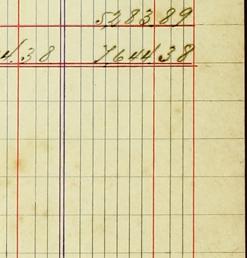 5,283.89
4.38 7,644.38